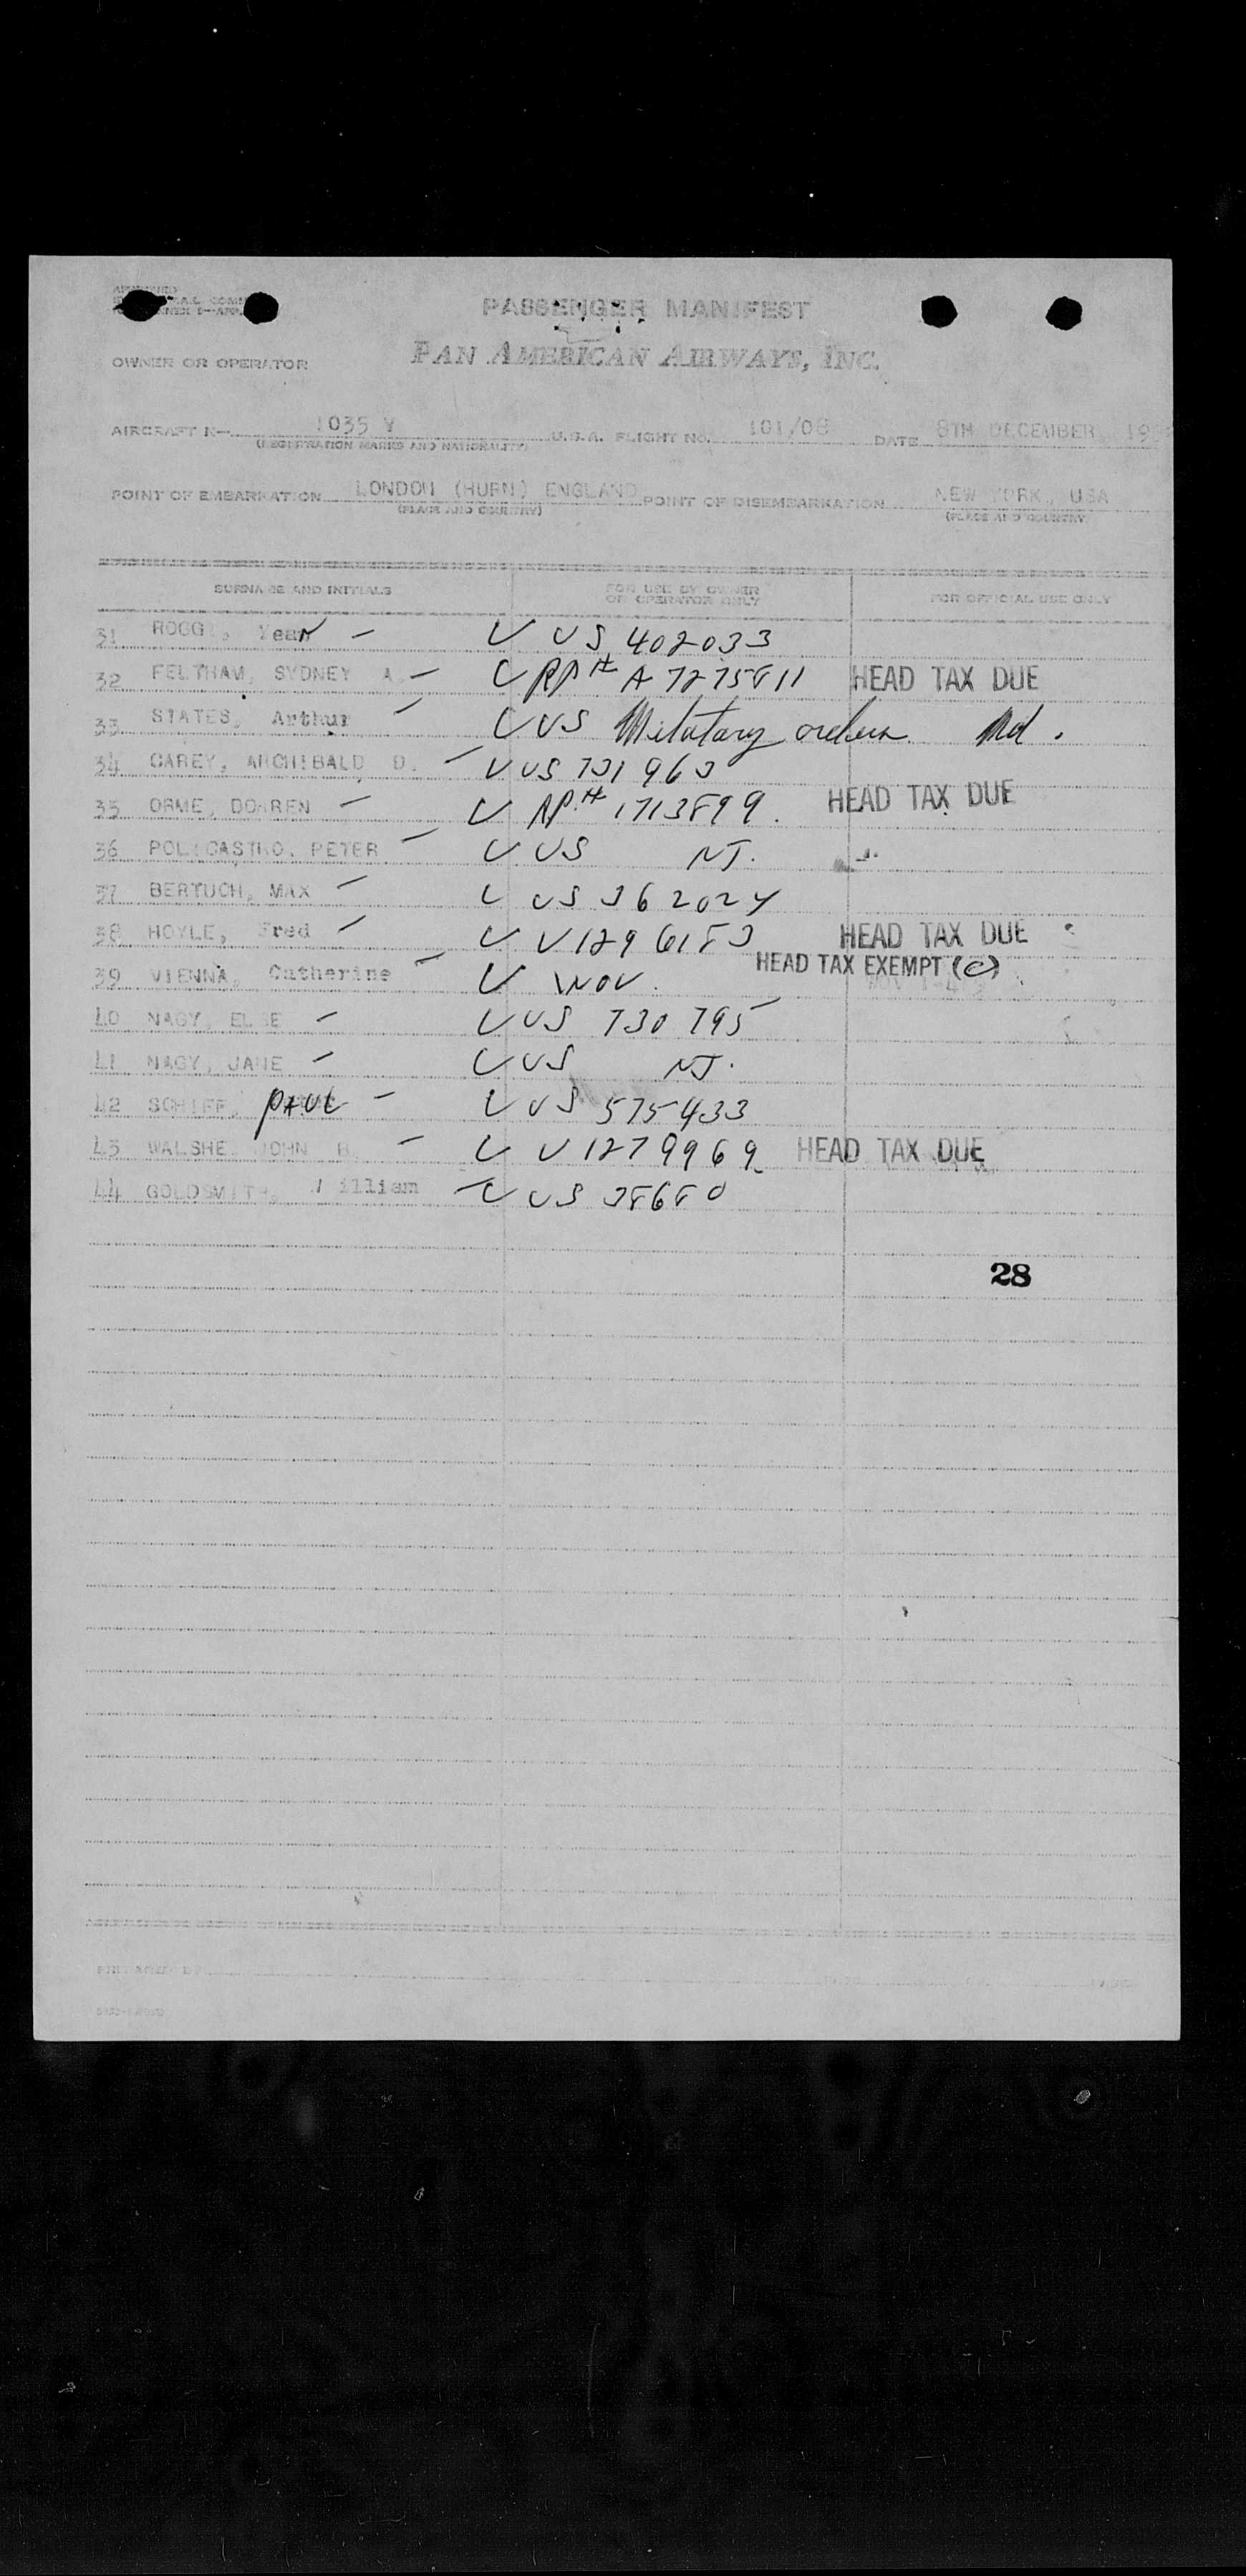 PASSENGER MANIFEST
OWNER OR OPERATOR PAN AMERICAN AIRWAYS, INC.
AIRCRAFT N— 1035 V U.S.A. FLIGHT NO. 101/08 DATE 8TH DECEMBER, 19
(REGISTRATION MARKS AND NATIONALITY)
POINT OF EMBARKATION LONDON (HURN) ENGLAND POINT OF DISEMBARKATION NEW YORK., USA
(PLACE AND COUNTRY) (PLACE AND COUNTRY)
SURNAME AND INITIALS FOR USE BY OWNER OR OPERATOR ONLY FOR OFFICIAL USE ONLY
31 Jean — ✓ US 402033
32 FELTHAM, SYDNEY A. — ✓ RP# A 7275811 HEAD TAX DUE
33 STATES, Arthur — ✓ US Military orders
34 CAREY, ARCHIBALD D. — ✓ US 731963
35 ORME, DOREEN — ✓ RP# 1713899. HEAD TAX DUE
36 POLICASTRO, PETER — ✓ US NJ.
37 BERTUCH, MAX — ✓ US 362024
38 HOYLE, Fred — ✓ V1296183 HEAD TAX DUE
39 VIENNA, Catherine — ✓ HEAD TAX EXEMPT (C)
40 NAGY, ELSE — ✓ US 730795
41 NAGY, JANE — ✓ US NJ.
42 SCHIFF, PAUL — ✓ US 575433
43 WALSHE JOHN B. — ✓ V1279969 HEAD TAX DUE
44 GOLDSMITH, William — ✓ US 38680
28